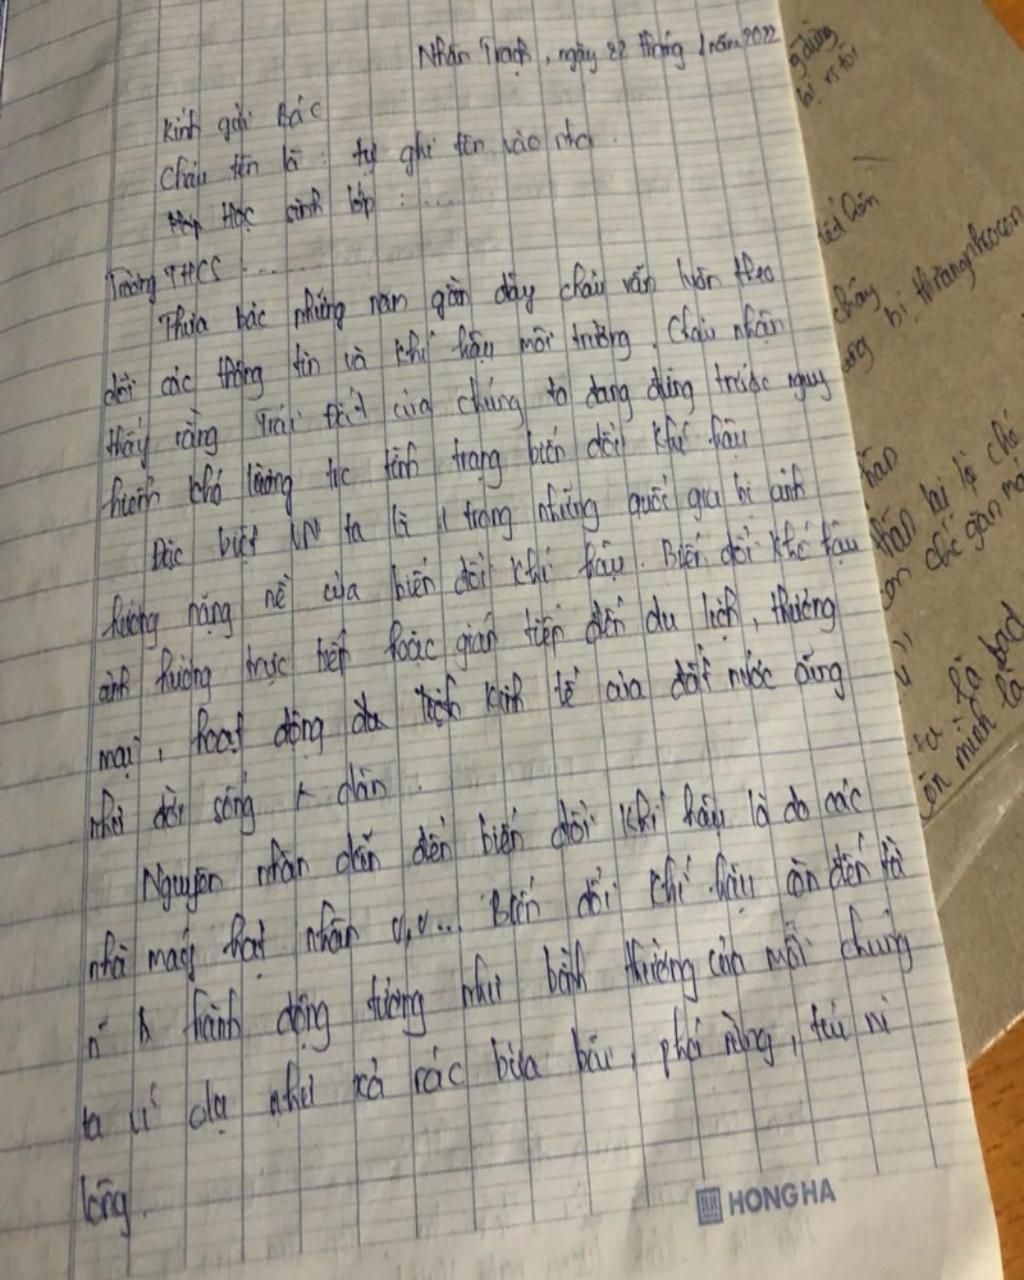 Nhân Trạch, ngày 22 tháng 1 năm 2022
Kính gửi Bác
Cháu tên là : tự ghi tên vào nha.
Học sinh lớp : ....
Trường THCS ....
Thưa bác những năm gần đây cháu vẫn luôn theo
dõi các thông tin và khí hậu môi trường. Cháu nhận
thấy rằng Trái Đất của chúng ta đang đứng trước nguy
hiểm khó lường tức tình trạng biến đổi khí hậu
Đặc biệt VN ta là 1 trong những quốc gia bị ảnh
hưởng nặng nề của biến đổi khí hậu. Biến đổi khí hậu
ảnh hưởng trực tiếp hoặc gián tiếp đến du lịch, thương
mại, hoạt động kinh tế của đất nước cũng
như đời sống dân.
Nguyên nhân dẫn đến biến đổi khí hậu là do các
nhà máy hạt nhân v,v... Biến đổi khí hậu còn đến từ
hành động tưởng như bình thường của mỗi chúng
ta ví dụ như xả rác bừa bãi, phá rừng, túi ni
lông.
HONG HA